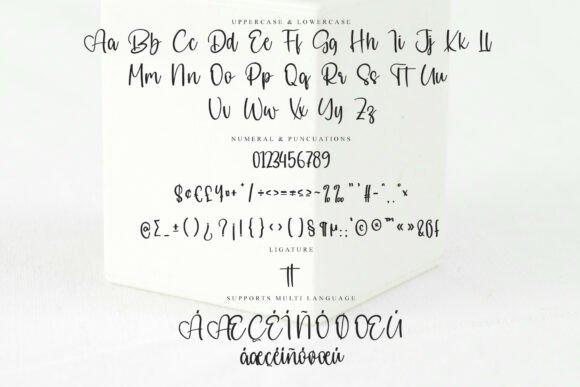 UPPERCASE & LOWERCASE
Aa Bb Cc Dd Ee Ff Gg Hh Ii Jj Kk Ll
Mm Nn Oo Pp Qq Rr Ss Tt Uu
Vv Ww Xx Yy Zz
NUMERAL & PUNCUATIONS
0123456789
$¢€£¥¤+°/÷<>=±≤≥~
@Σ_±()¿?¡!{}‹›()§¶µ::'©®™«»&ßf
LIGATURE
tt
SUPPORTS MULTI LANGUAGE
ÁÆÇÉÍÑÓØŒÚ
áæçéíñóøœú